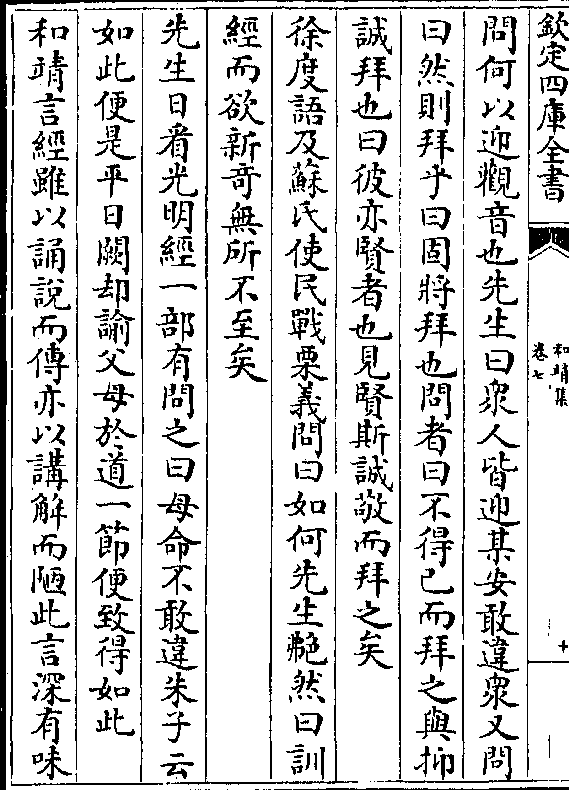 欽定四庫全書
和靖集
卷七
十
問何以迎觀音也先生曰衆人皆迎某安敢違衆又問
曰然則拜乎曰固將拜也問者曰不得已而拜之與抑
誠拜也曰彼亦賢者也見賢斯誠敬而拜之矣
徐度語及蘇氏使民戰栗義問曰如何先生艴然曰訓
經而欲新竒無所不至矣
先生日看光明經一部有問之曰母命不敢違朱子云
如此便是平日闕却諭父母於道一節便致得如此
和靖言經雖以誦說而傳亦以講解而陋此言深有味